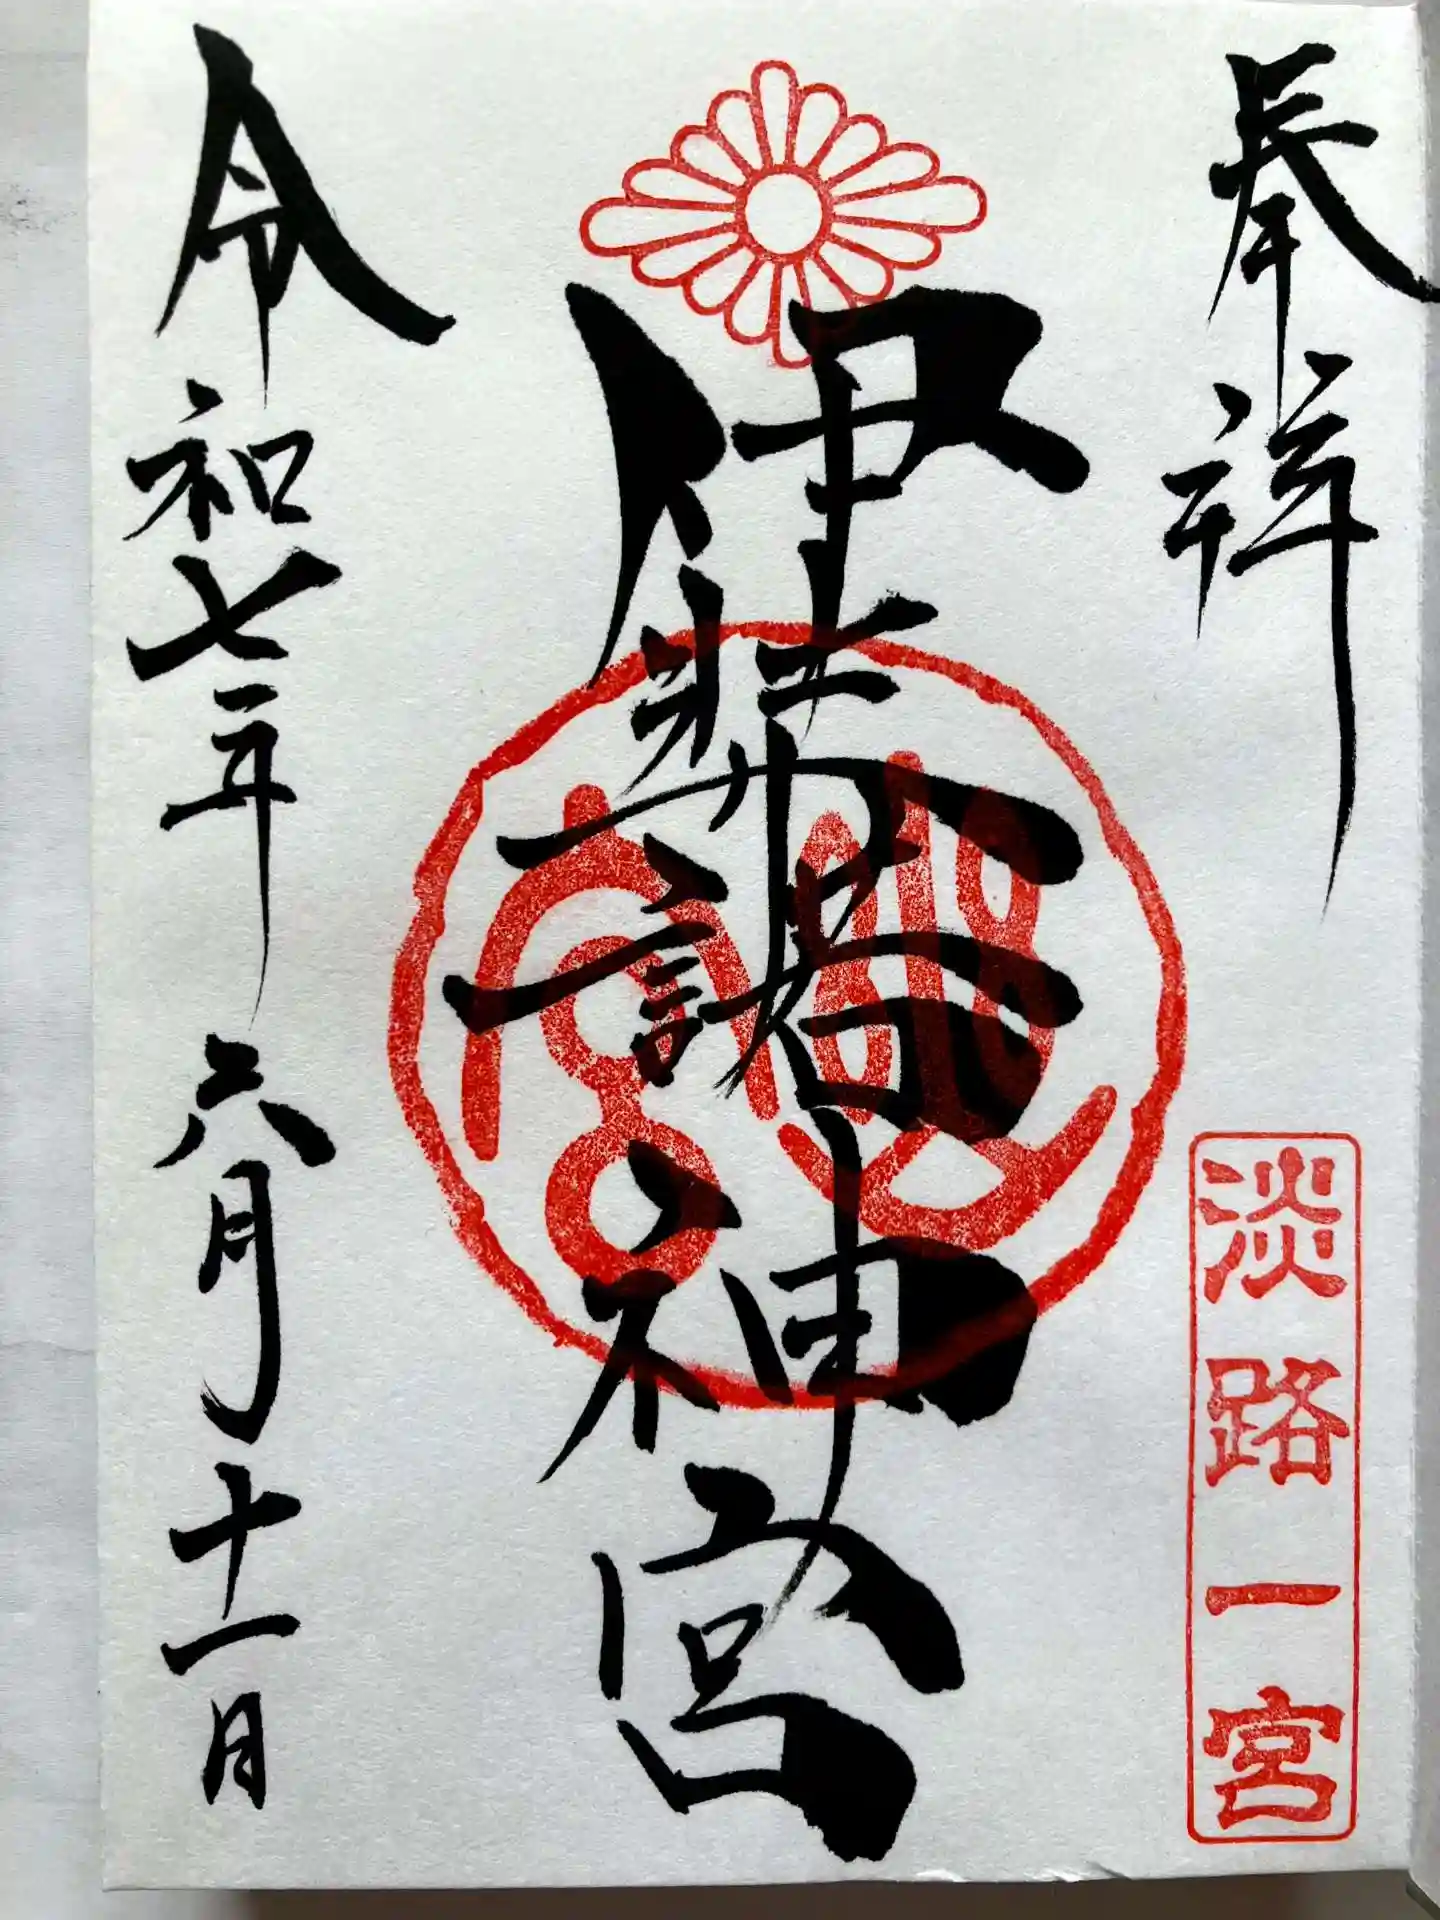 奉拝
淡路一宮
伊弉諾神宮
令和七年六月十一日